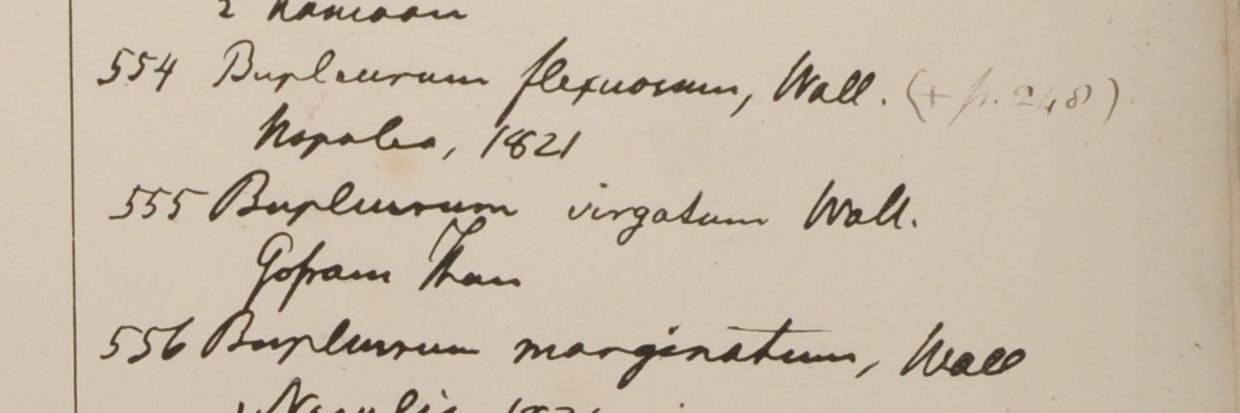 2 Kamaon
554 Bupleurum flexuosum, Wall. (+ p. 248).
Nepalea, 1821
555 Bupleurum virgatum Wall.
Gosam Than
556 Bupleurum marginatum, Wall
Napalia 1821